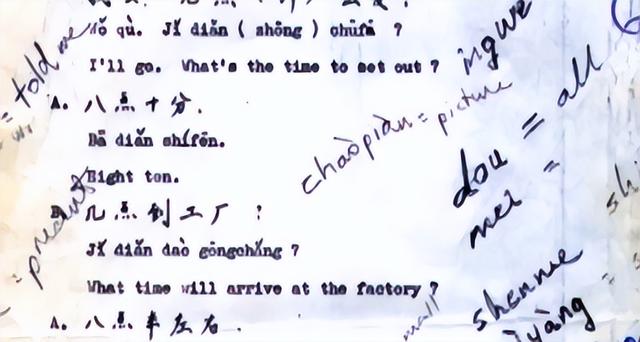 Wǒ qù. Jǐ diǎn ( zhōng ) chūfā ?
I'll go. What's the time to set out ?
A. 八点十分.
Bā diǎn shífēn.
Eight ten.
B. 几点到工厂 ?
Jǐ diǎn dào gōngchǎng ?
What time will arrive at the factory ?
A. 八点半左右.
= told me
chaòpiàn = picture
dou = all
mei =
shenme